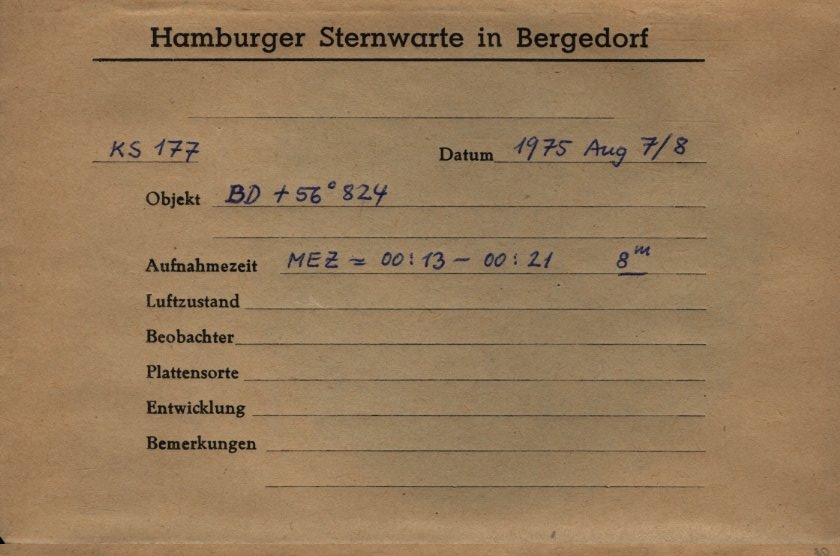 Hamburger Sternwarte in Bergedorf
KS 177 Datum 1975 Aug 7/8
Objekt BD + 56° 824
Aufnahmezeit MEZ = 00:13 – 00:21 8ᵐ
Luftzustand
Beobachter
Plattensorte
Entwicklung
Bemerkungen